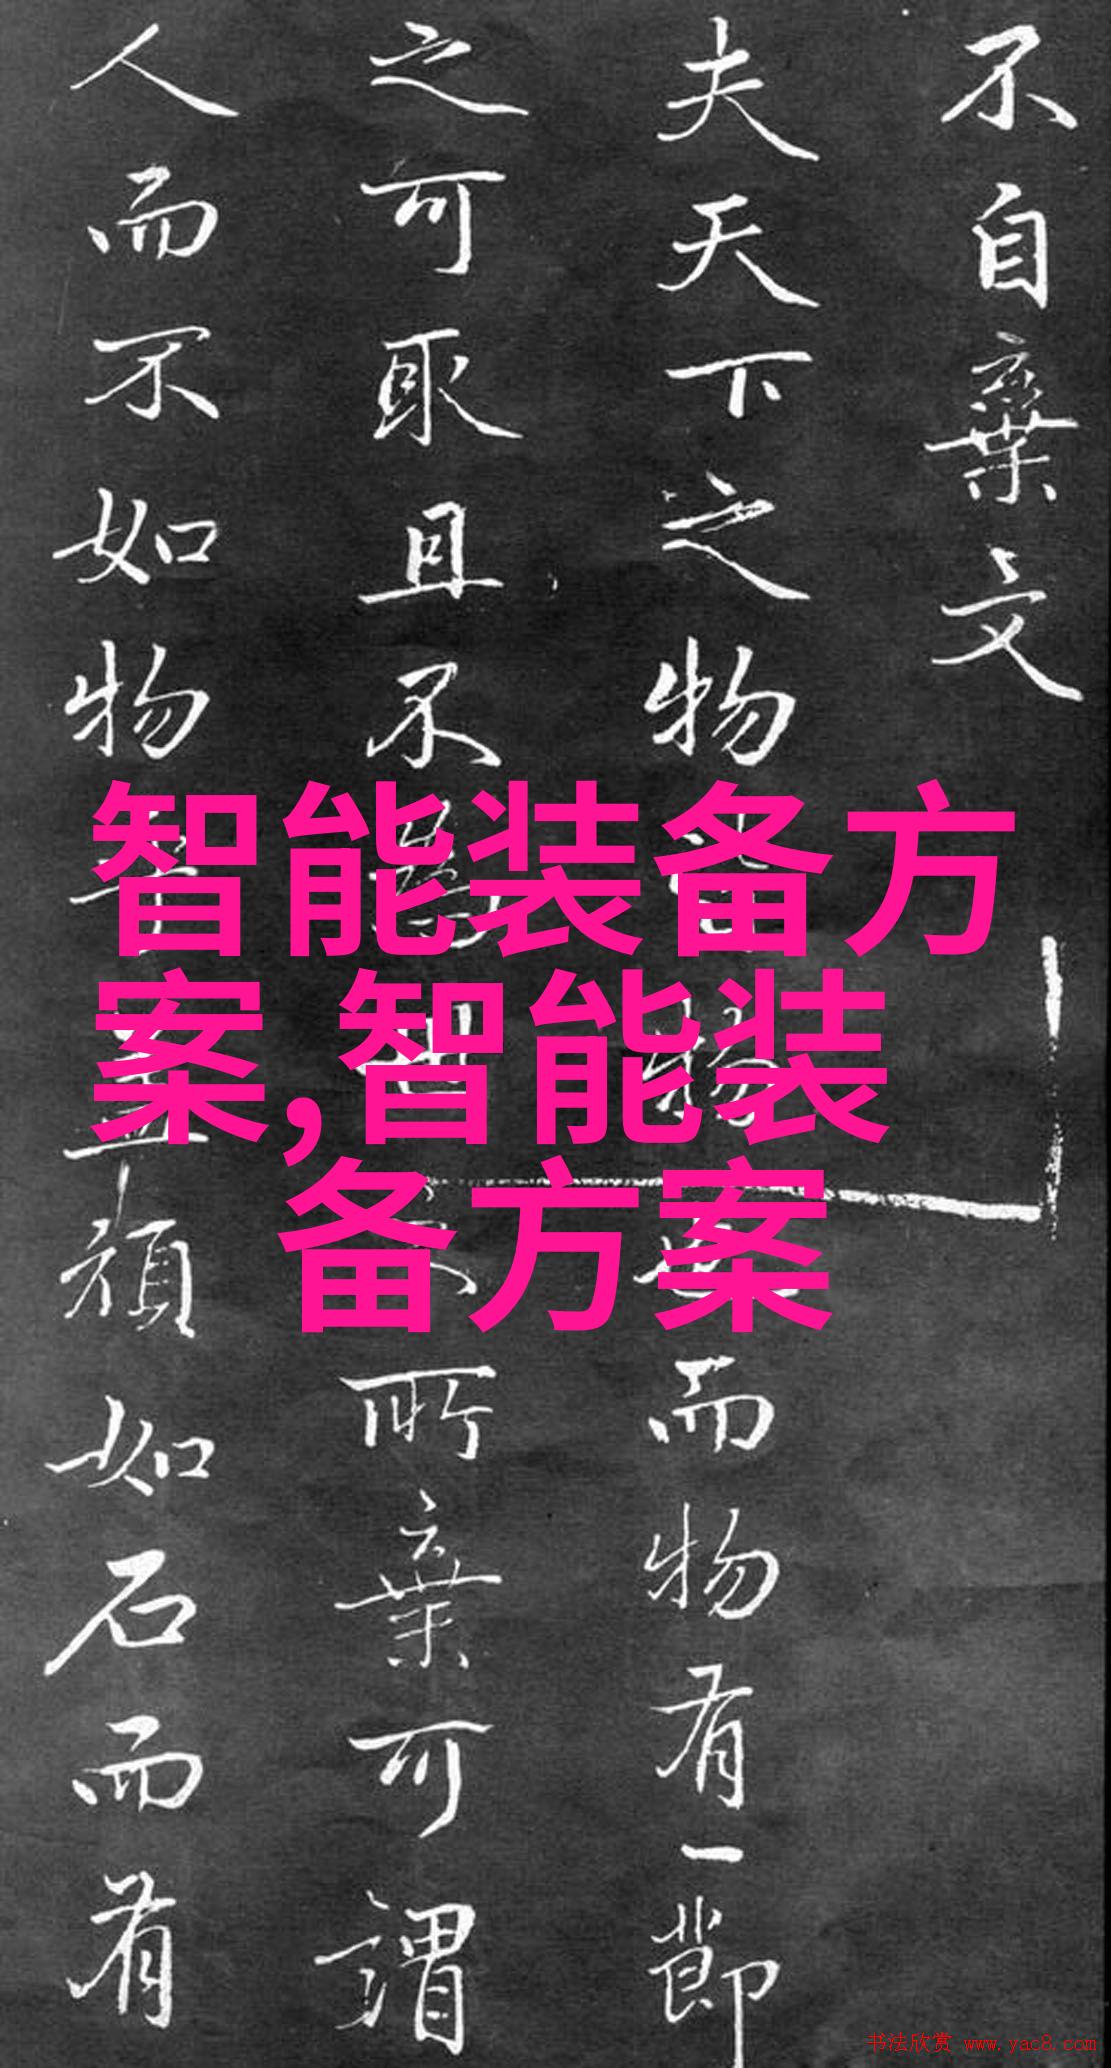 不自棄文
夫天下之物皆物也而物有一節
之可取且不為世之所棄可謂
人而不如物乎蓋頑如石而有
智能装备方
案,智能装
备方案
书法欣赏 www.yac8.com